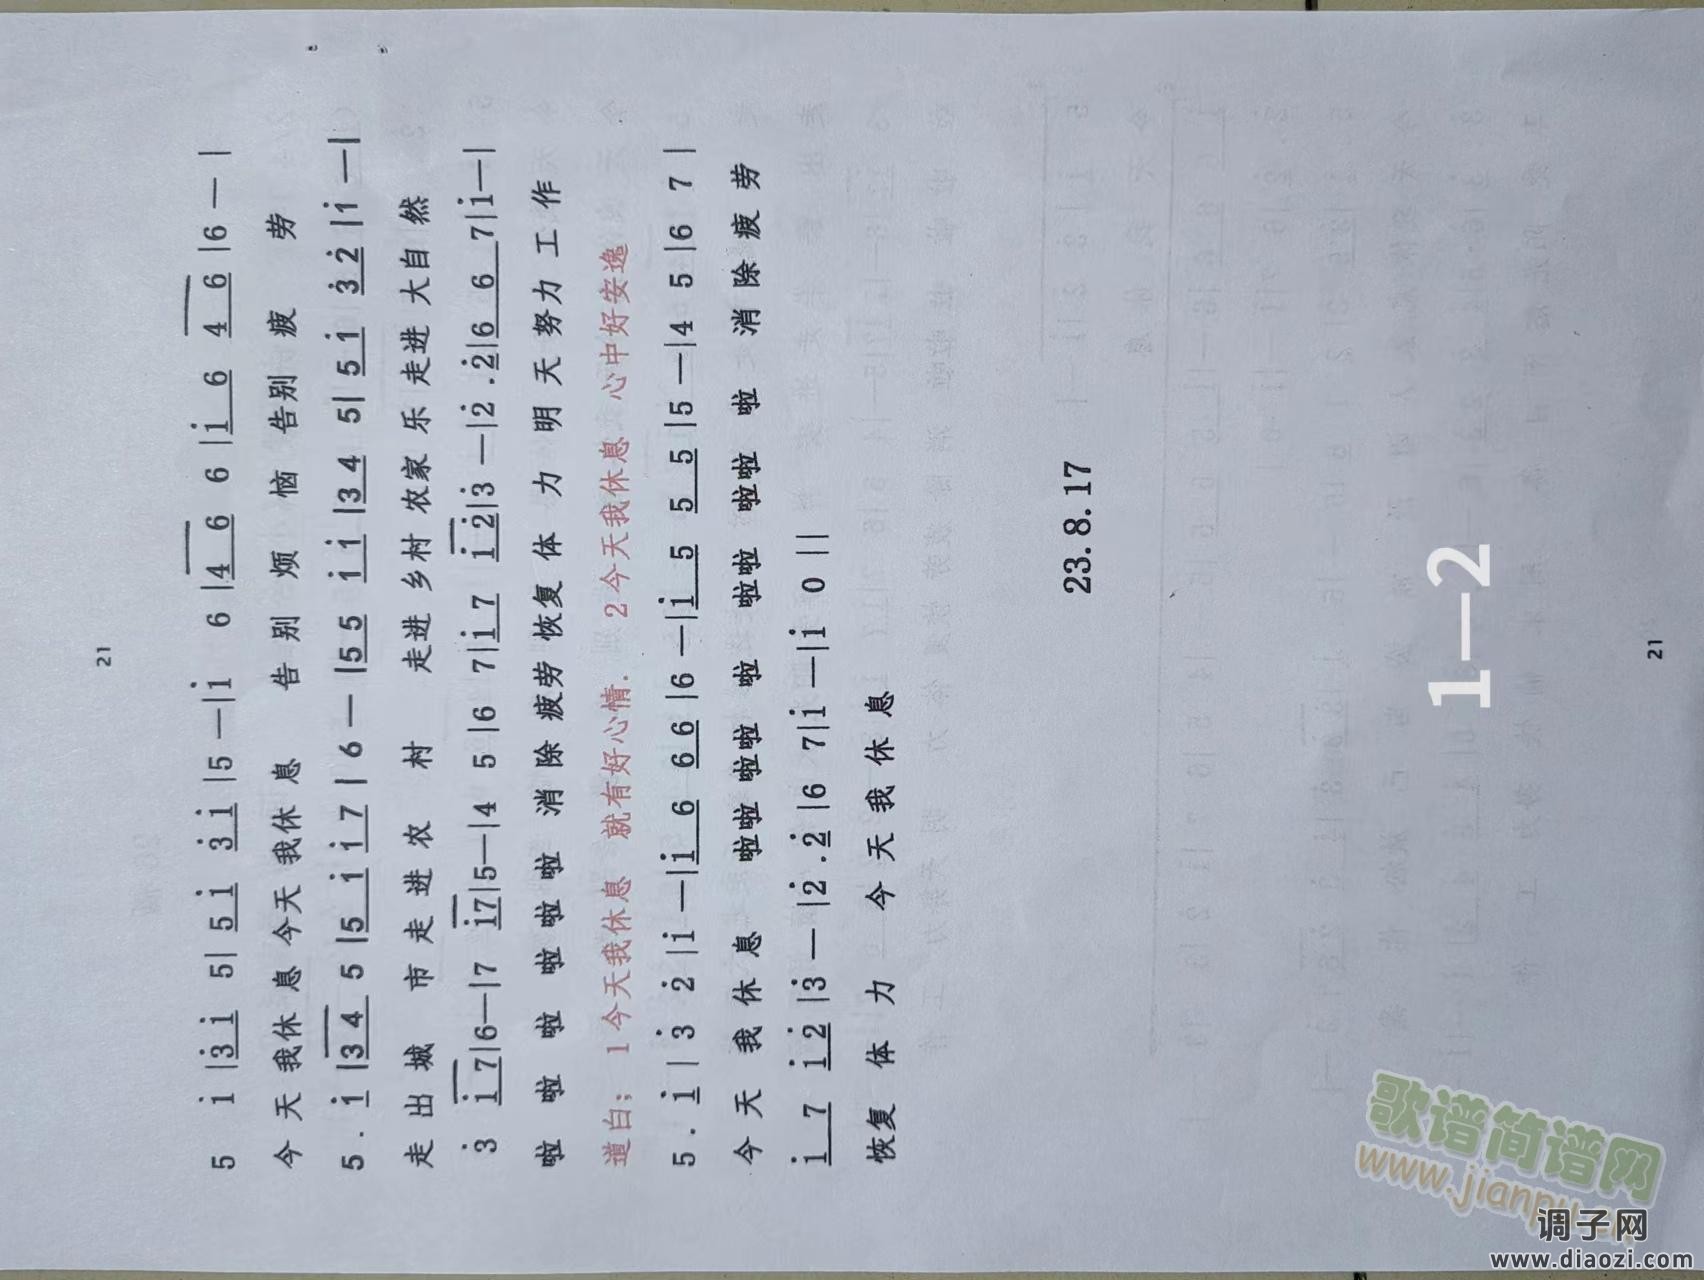 21
5 i̇ |3̇ i̇ 5| 5 i̇ 3̇ i̇ |5 —|i̇ 6 |4 6 6 |i̇ 6 4 6 |6 — |
今 天 我休 息 今天 我休 息 告 别 烦 恼 告别 疲 劳
5 . i̇ |3 4 5 |5 i̇ i̇ 7 | 6 — |5 5 i̇ i̇ |3 4 5| 5 i̇ 3̇ 2̇ |i̇ —|
走 出 城 市 走 进 农 村 走进 乡村 农家 乐 走进 大自 然
3̇ i̇ 7|6—|7 i̇7|5—|4 5 |6 7|i̇ 7 i̇ 2̇|3̇ —|2̇ . 2̇|6 6 7|i̇—|
啦 啦 啦 啦 啦 啦 消 除 疲劳 恢复 体 力 明 天 努力 工 作
道白；1今天我休息 就有好心情. 2今天我休息 心中好安逸
5 . i̇ | 3̇ 2̇ |i̇ —|i̇ 6 6 6 |6 —|i̇ 5 5 5 |5 —|4 5 |6 7 |
今 天 我 休 息 啦啦 啦啦 啦 啦啦 啦啦 啦 消 除 疲 劳
i̇ 7 i̇ 2̇ |3̇— |2̇ . 2̇ |6 7|i̇ —|i̇ 0 ||
恢复 体 力 今 天 我 休 息
23.8.17
1—2
21
歌谱简谱网
调子网
www.diaozi.com